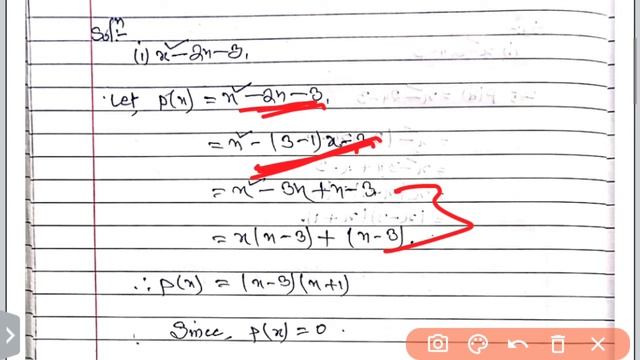 Solⁿ:-
(i) x² - 2x - 3.
Let, p(x) = x² - 2x - 3.
= x² - (3-1)x - 3
= x² - 3x + x - 3.
= x(x-3) + (x-3).
∴ p(x) = (x-3)(x+1)
Since, p(x) = 0.